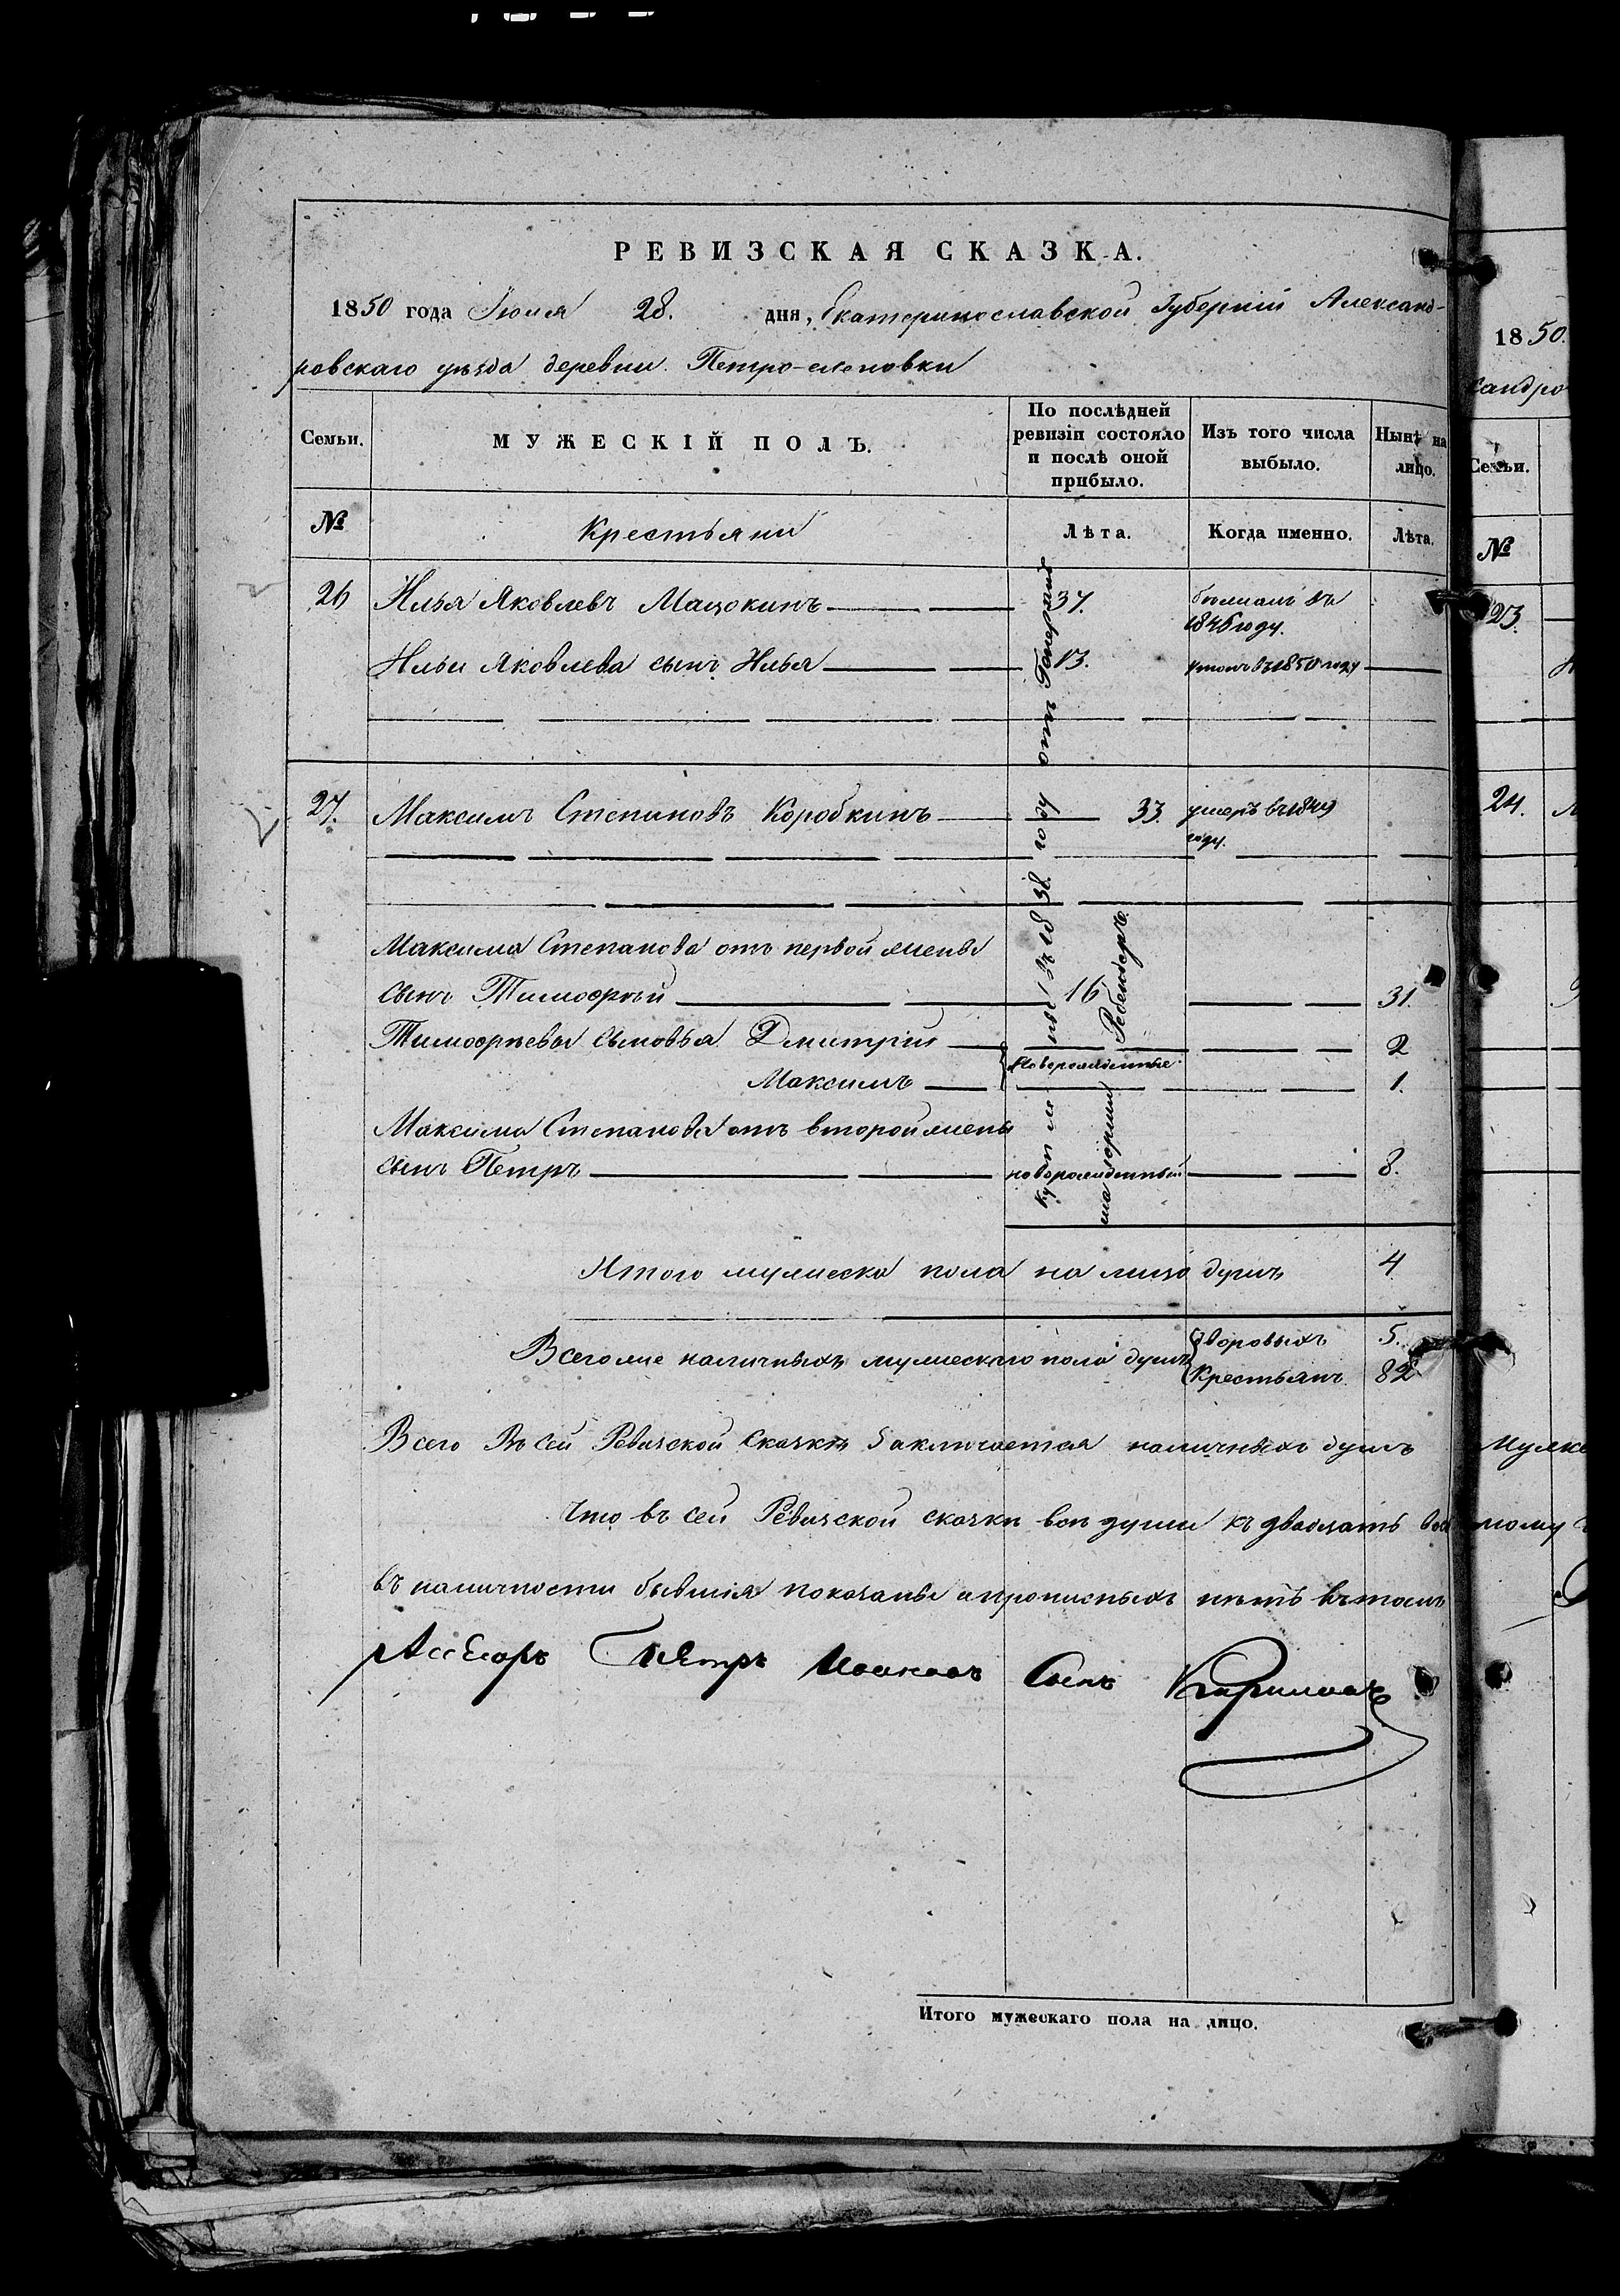 РЕВИЗСКАЯ СКАЗКА.
1850 года Июля 28. дня, Екатеринославской Губерніи Александ-
ровскаго уѣзда деревни Петро-
Семьи.
МУЖЕСКІЙ ПОЛЪ.
По послѣдней ревизіи состояло и послѣ оной прибыло.
Изъ того числа выбыло.
Нынѣ на лицо.
№
Крестьяни
Лѣта.
Когда именно.
Лѣта.
26 Илья Яковлевъ Мацокинъ 37. въ
1846 году.
Ильи Яковлева сынъ Илья 13. въ 1850 году
27. Максимъ Степановъ Коробкинъ 33. умеръ въ 1849
году.
Максима Степанова отъ первой жены
сынъ Тимофѣй 16 31.
Тимофѣевы сыновья Дмитрій 2
новорожденные
Максимъ 1.
Максима Степанова отъ второй жены
сынъ Петръ новорожденный 8.
1838 году отъ
Итого мужеска пола на лицо душъ 4
Всего же наличныхъ мужескаго пола душъ
дворовыхъ 5.
крестьянъ 82
Всего Въ сей Ревизской Сказкѣ Заключается наличныхъ душъ
Что въ сей Ревизской сказкѣ всѣ души къ двадцать
въ наличности бывшія показаны и прописныхъ нѣтъ въ томъ
Ассесоръ Петръ Ивановъ Сынъ
Итого мужескаго пола на лицо.
1850.
сандро
Семьи.
№
23.
24.